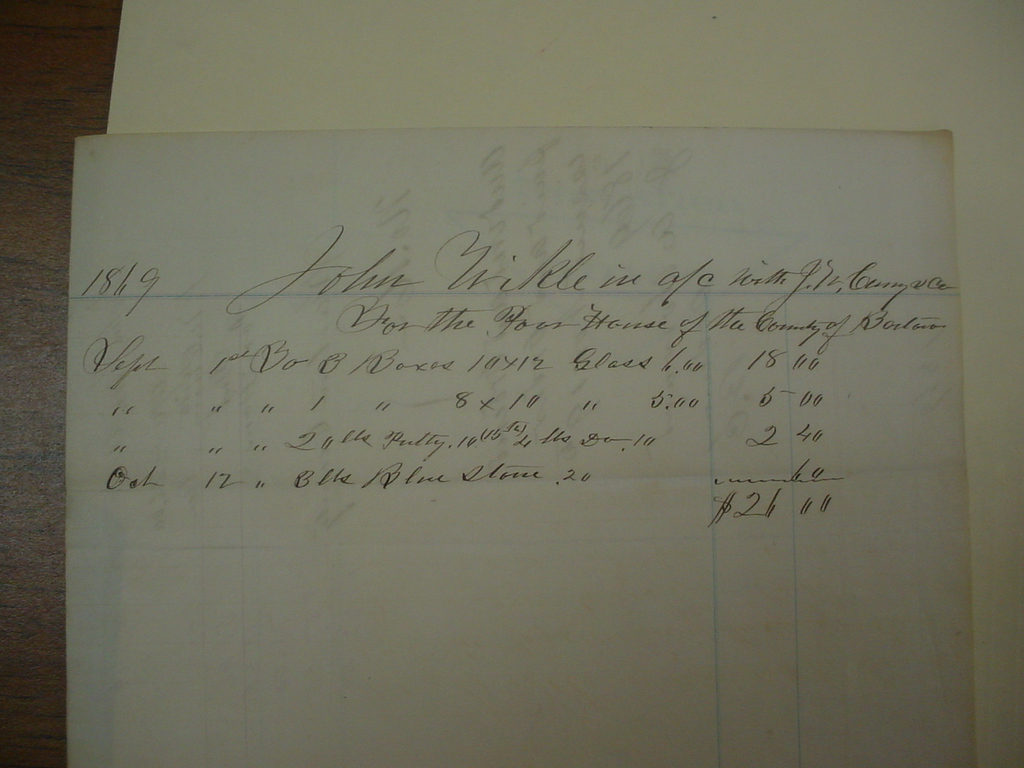 1869 John Wikle in a/c with J. W. Curry & Co
For the Poor House of the County of Bartow
Sept 1st To 3 Boxes 10x12 Glass 6.00 18 00
" " " 1 " 8 x 10 " 5.00 5 00
" " " 20 lbs Putty .10 4 lbs Do .10 2 40
Oct 12 " 3 lbs Blue Stone .20 60
$26 00